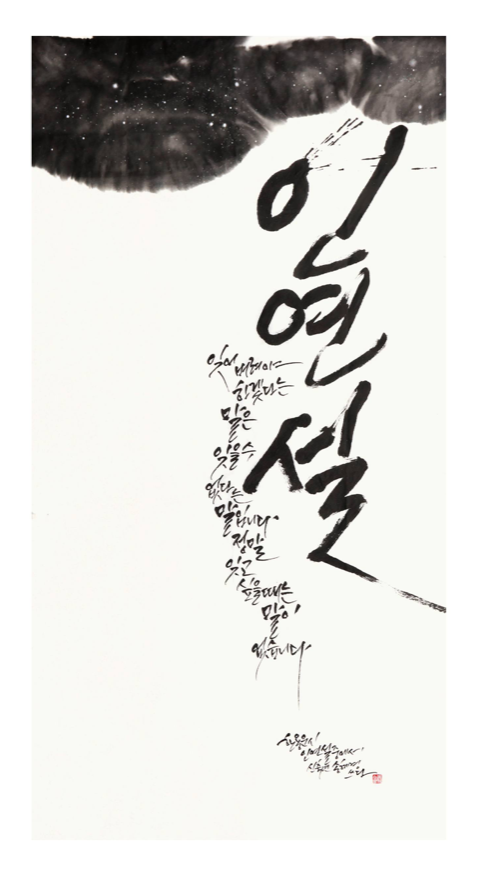 인
연
설
잊어 버려야
하겠다는
말은
잊을 수
없다는
말입니다.
정말
잊고
싶을 때는
말이
없습니다.
한용운 시
인연설 중에서.
쓰다